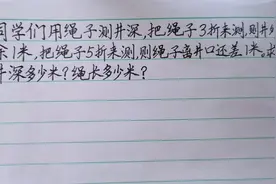 同学们用绳子测井深,把绳子3折来测,则井外
余1米,把绳子5折来测,则绳子离井口还差1米。求
井深多少米?绳长多少米?